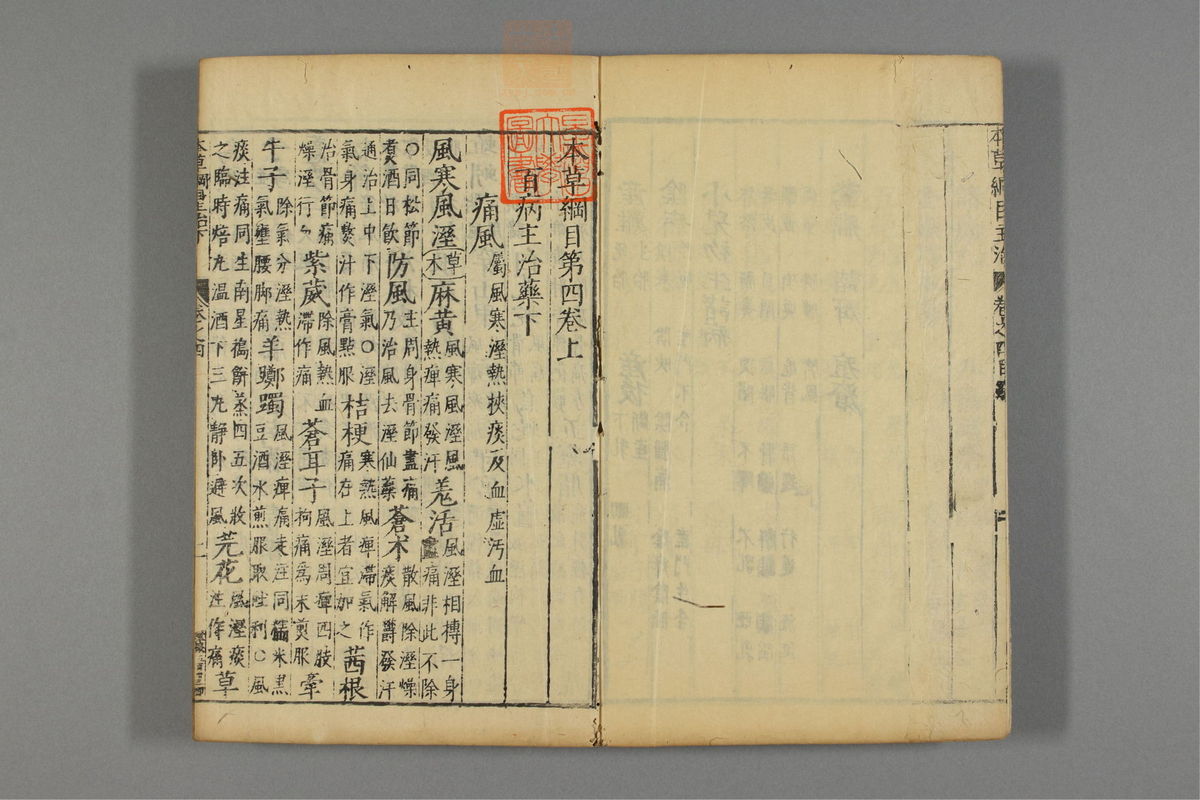 本草綱目主治
卷之四目錄
本草綱目第四卷上
百病主治藥下
痛風 屬風寒溼熱挾痰及血虛汚血
風寒風溼 草木 麻黃 風寒風溼風熱痺痛發汗 羗活 風溼相搏一身盡痛非此不除
○同松節煮酒日飲 防風 主周身骨節盡痛乃治風去溼仙藥 蒼朮 散風除溼燥痰解鬱發汗
通治上中下溼氣○溼氣身痛熬汁作膏點服 桔梗 寒熱風痺滯氣作痛在上者宜加之 茜根
治骨節痛燥溼行血 紫葳 除風熱血滯作痛 蒼耳子 風溼周痺四肢拘痛爲末煎服 牽
牛子 除氣分溼熱氣壅腰脚痛 羊躑躅 風溼痺痛走注同糯米黑豆酒水煎服取吐利○風
痰注痛同生南星搗餅蒸四五次收之臨時焙丸溫酒下三丸靜卧避風 芫花 風溼痰注作痛 草
本草綱目主治下
卷之四